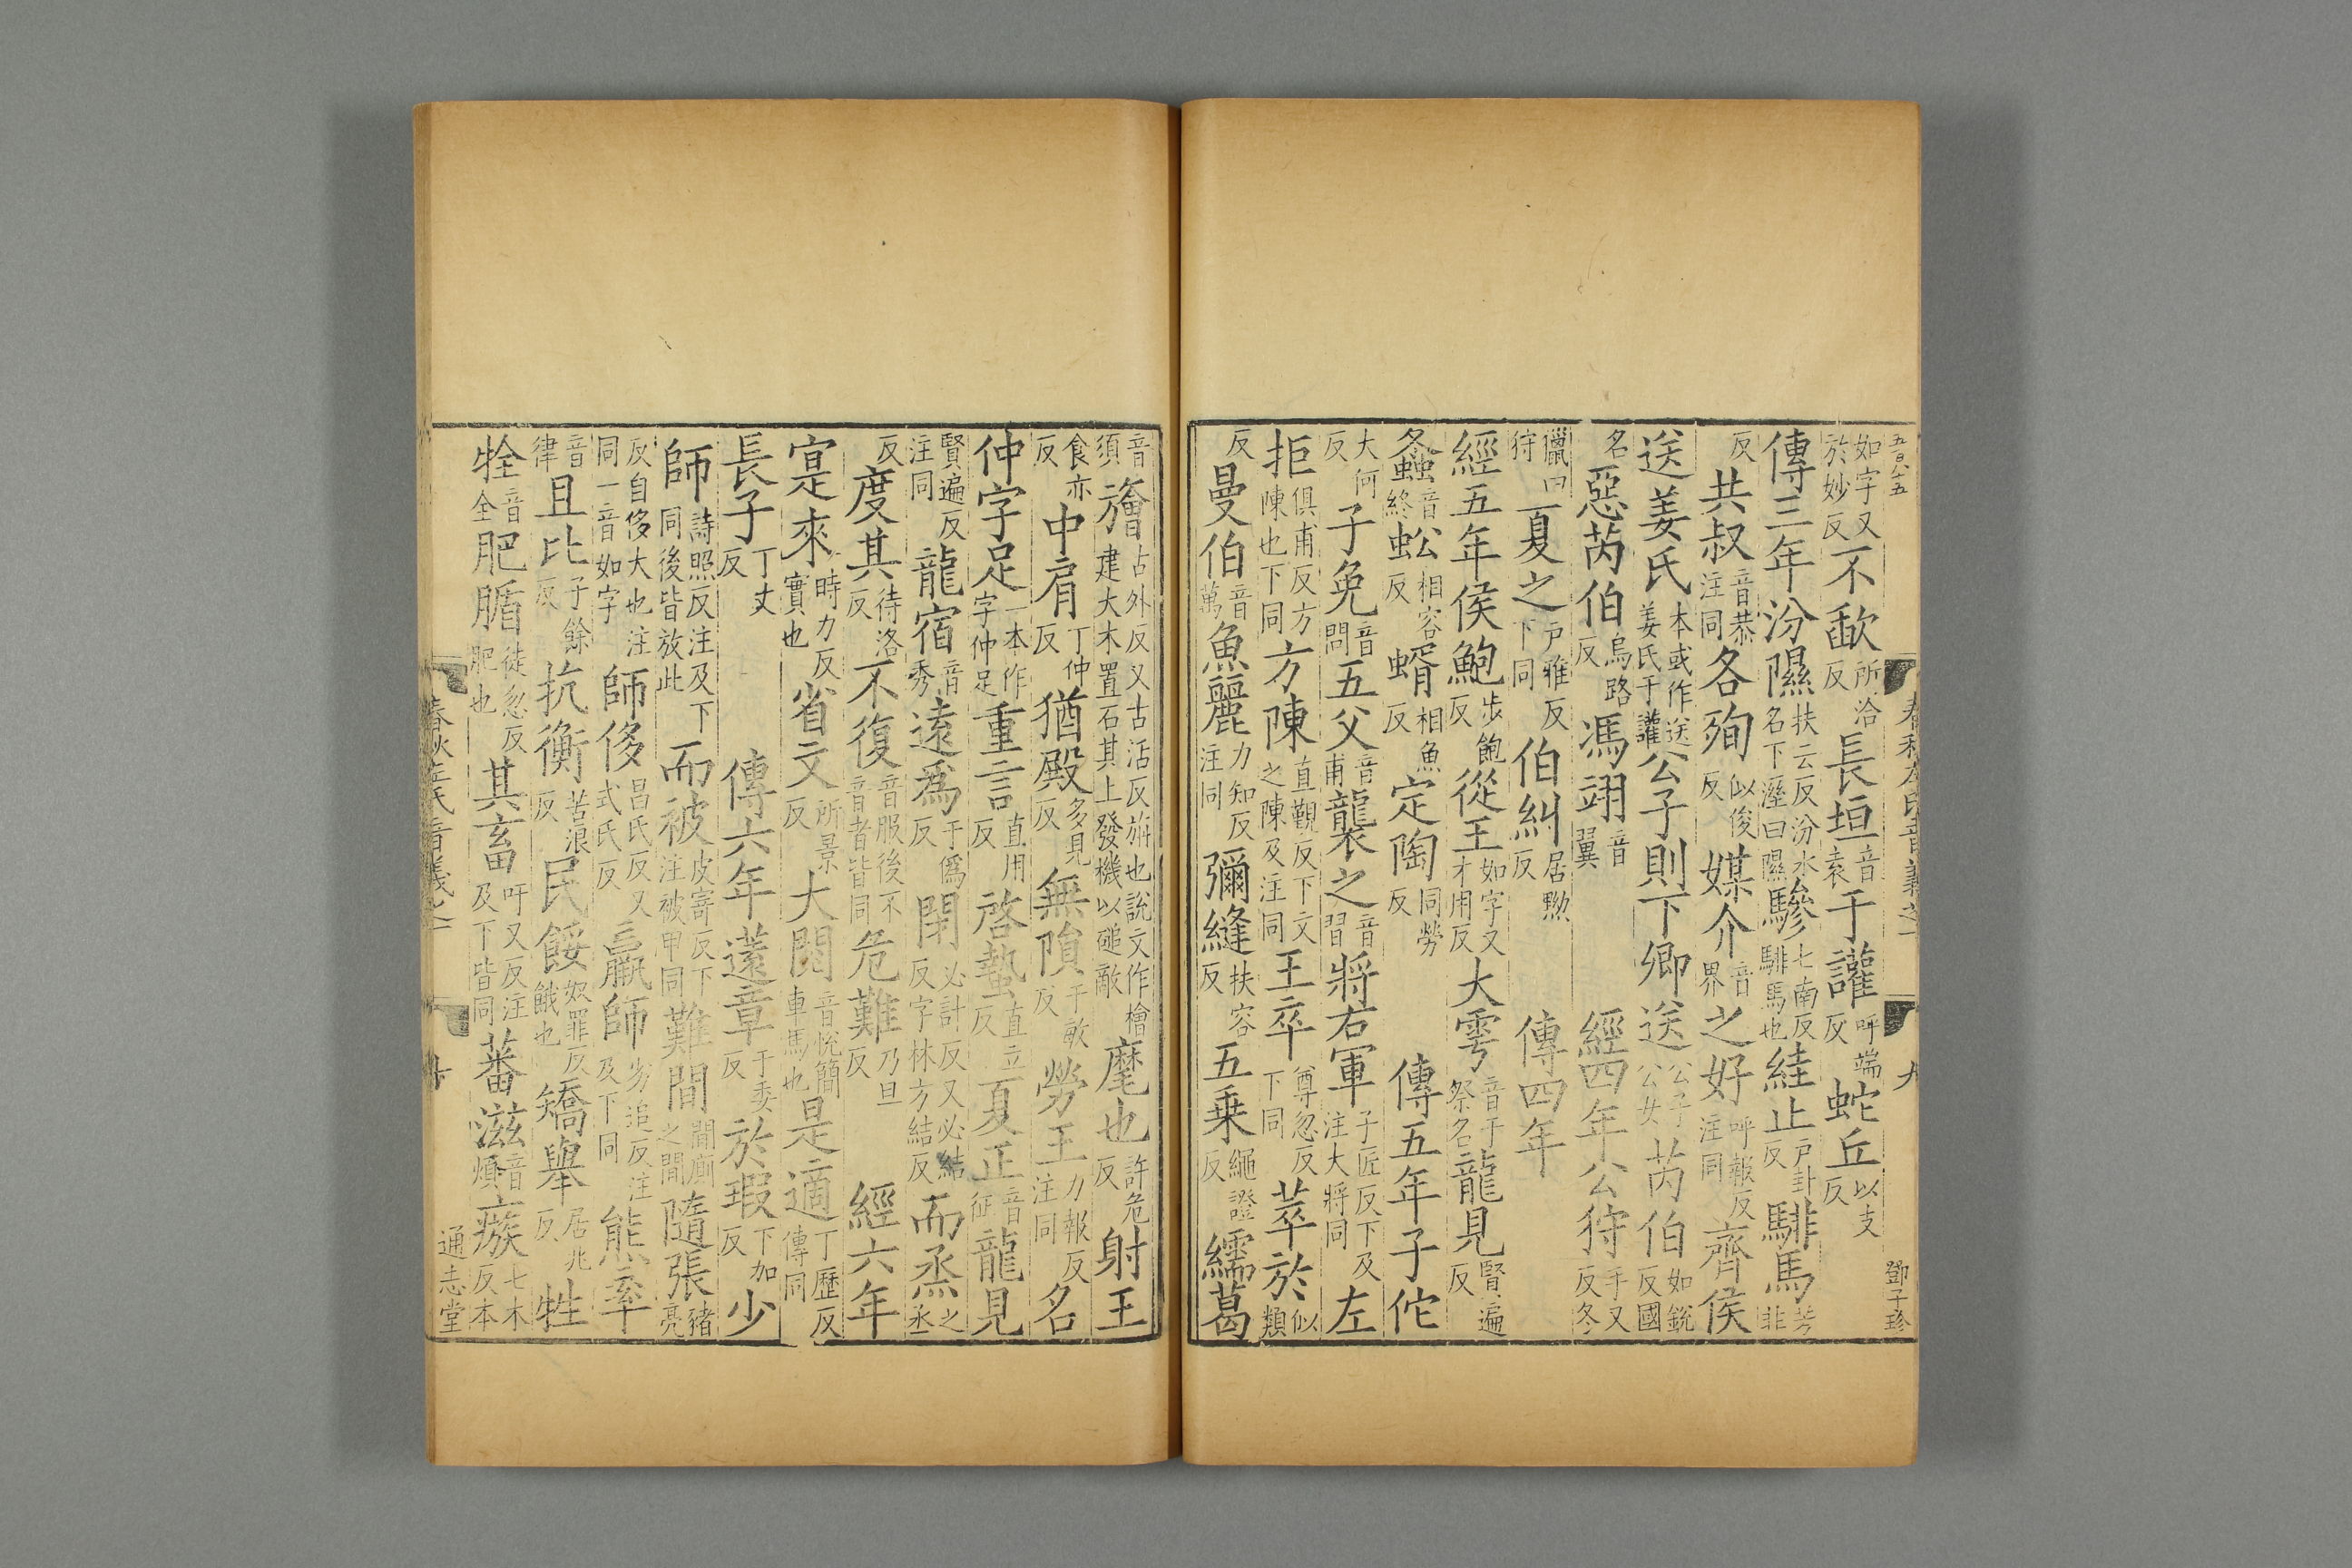 五百八十五 春秋左氏音義之一 九 鄧子珍
如字又於妙反不歃所洽反長垣音袁于讙呼端反蛇丘以支反
傳三年汾隰扶云反汾水名下溼曰隰驂七南反騑馬也絓止戶卦反騑馬芳非
反共叔音恭注同各殉似俊反媒介音界之好呼報反注同齊侯
送姜氏本或作送姜氏于讙公子則下卿送公子公女芮伯如銳反國
名惡芮伯烏路反馮翊音翼 經四年公狩手又反冬
獵曰狩夏之戶雅反下同伯糾居黝反 傳四年
經五年侯鮑步飽反從王如字又才用反大雩音于祭名龍見賢遍反
螽音終蚣相容反蝑相魚反定陶同勞反 傳五年子佗
大何反子免音問五父音甫襲之音習將右軍子匠反下及注大將同左
拒俱甫反方陳也下同方陳直覲反下文之陳及注同王卒尊忽反下同萃於似類
反曼伯音萬魚麗力知反注同彌縫扶容反五乗繩證反繻葛
音須旝古外反又古活反旃也說文作檜建大木置石其上發機以磓敵麾也許危反射王
食亦反中肩丁仲反猶殿多見反無隕于敏反勞王力報反注同名
仲字足一本作字仲足重言直用反啓蟄直立反夏正音征龍見
賢遍反注同龍宿音秀遠爲于僞反閉必計反又必結反字林方結反而烝之丞
反度其待洛反不復音服後不音者皆同危難乃旦反 經六年
寔來時力反實也省文所景反大閱音悅簡車馬也是適丁歷反傳同
長子丁丈反 傳六年薳章于委反於瑕下加反少
師詩照反注及下同後皆放此而被皮寄反下注被甲同難間間廁之間隨張豬亮
反自侈大也注同一音如字師侈昌氏反又式氏反羸師劣追反注及下同熊率
音律且比子餘反抗衡苦浪反民餒奴罪反餓也矯舉居兆反牲
牷音全肥腯徒忽反肥也其畜吁又反注及下皆同蕃滋音煩瘯七木反本
春秋左氏音義之一 十 通志堂